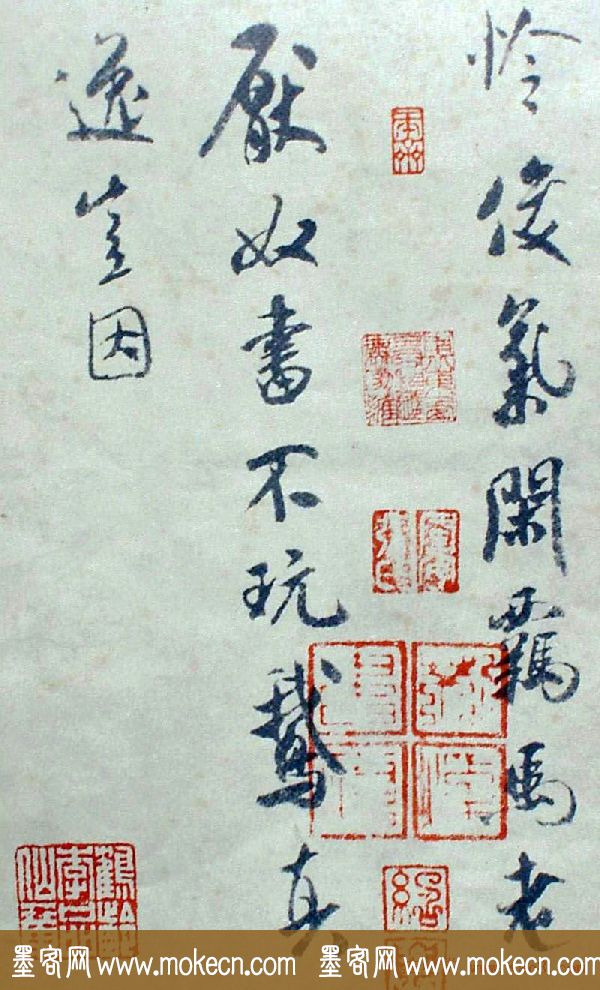 怜俊氣閑羈馬老
厭奴書不玩鵝真
逸豈因
墨客网 www.mokecn.com 墨客网 www.mokecn.com